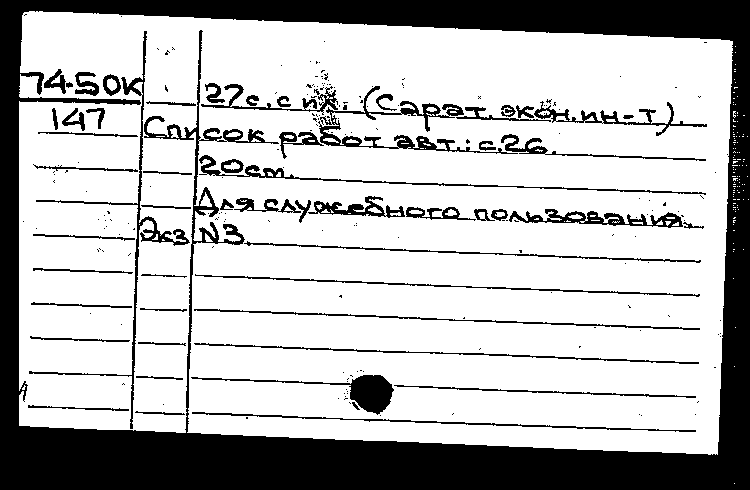 74-50К
147
27с. с ил. (Сарат. экон. ин-т).
Список работ авт.: с. 26.
20см.
Для служебного пользования.
Экз N3.